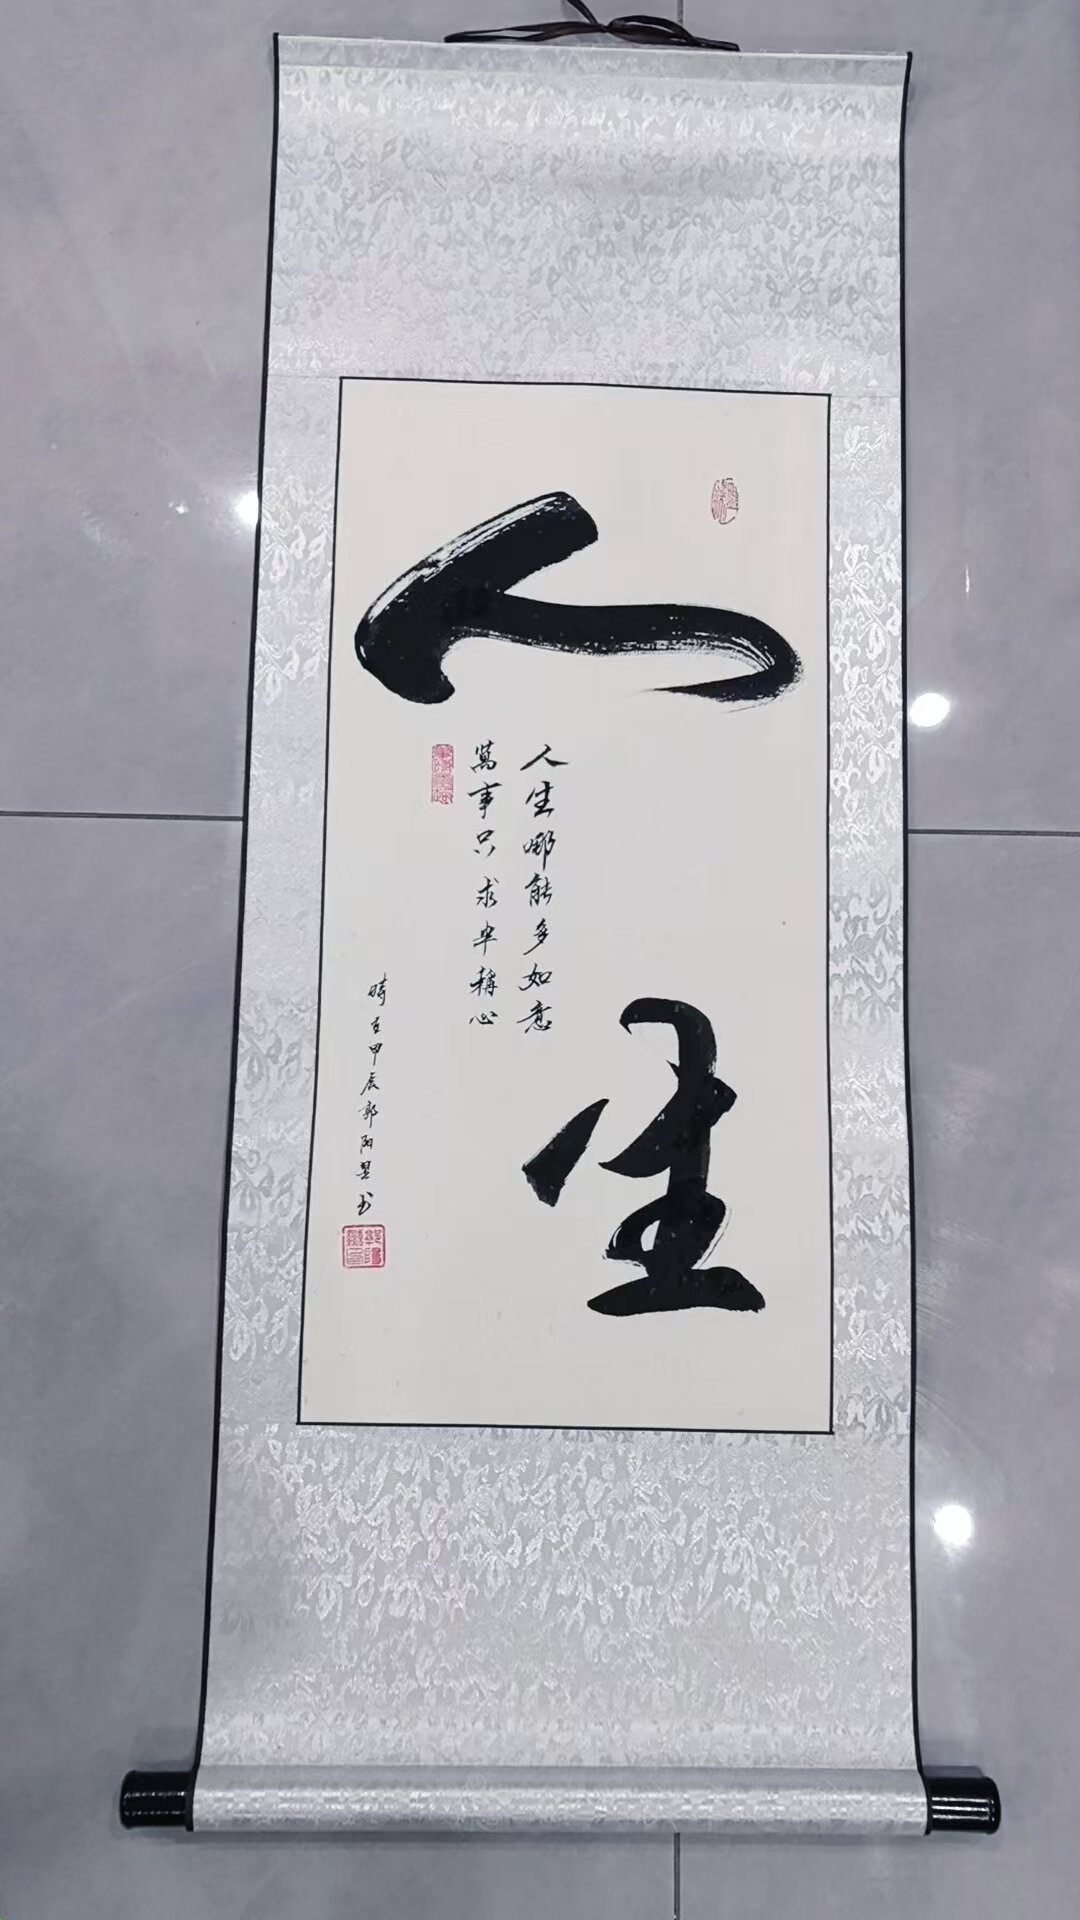 人生
人生哪能多如意
萬事只求半稱心
時在甲辰郭阳昱书